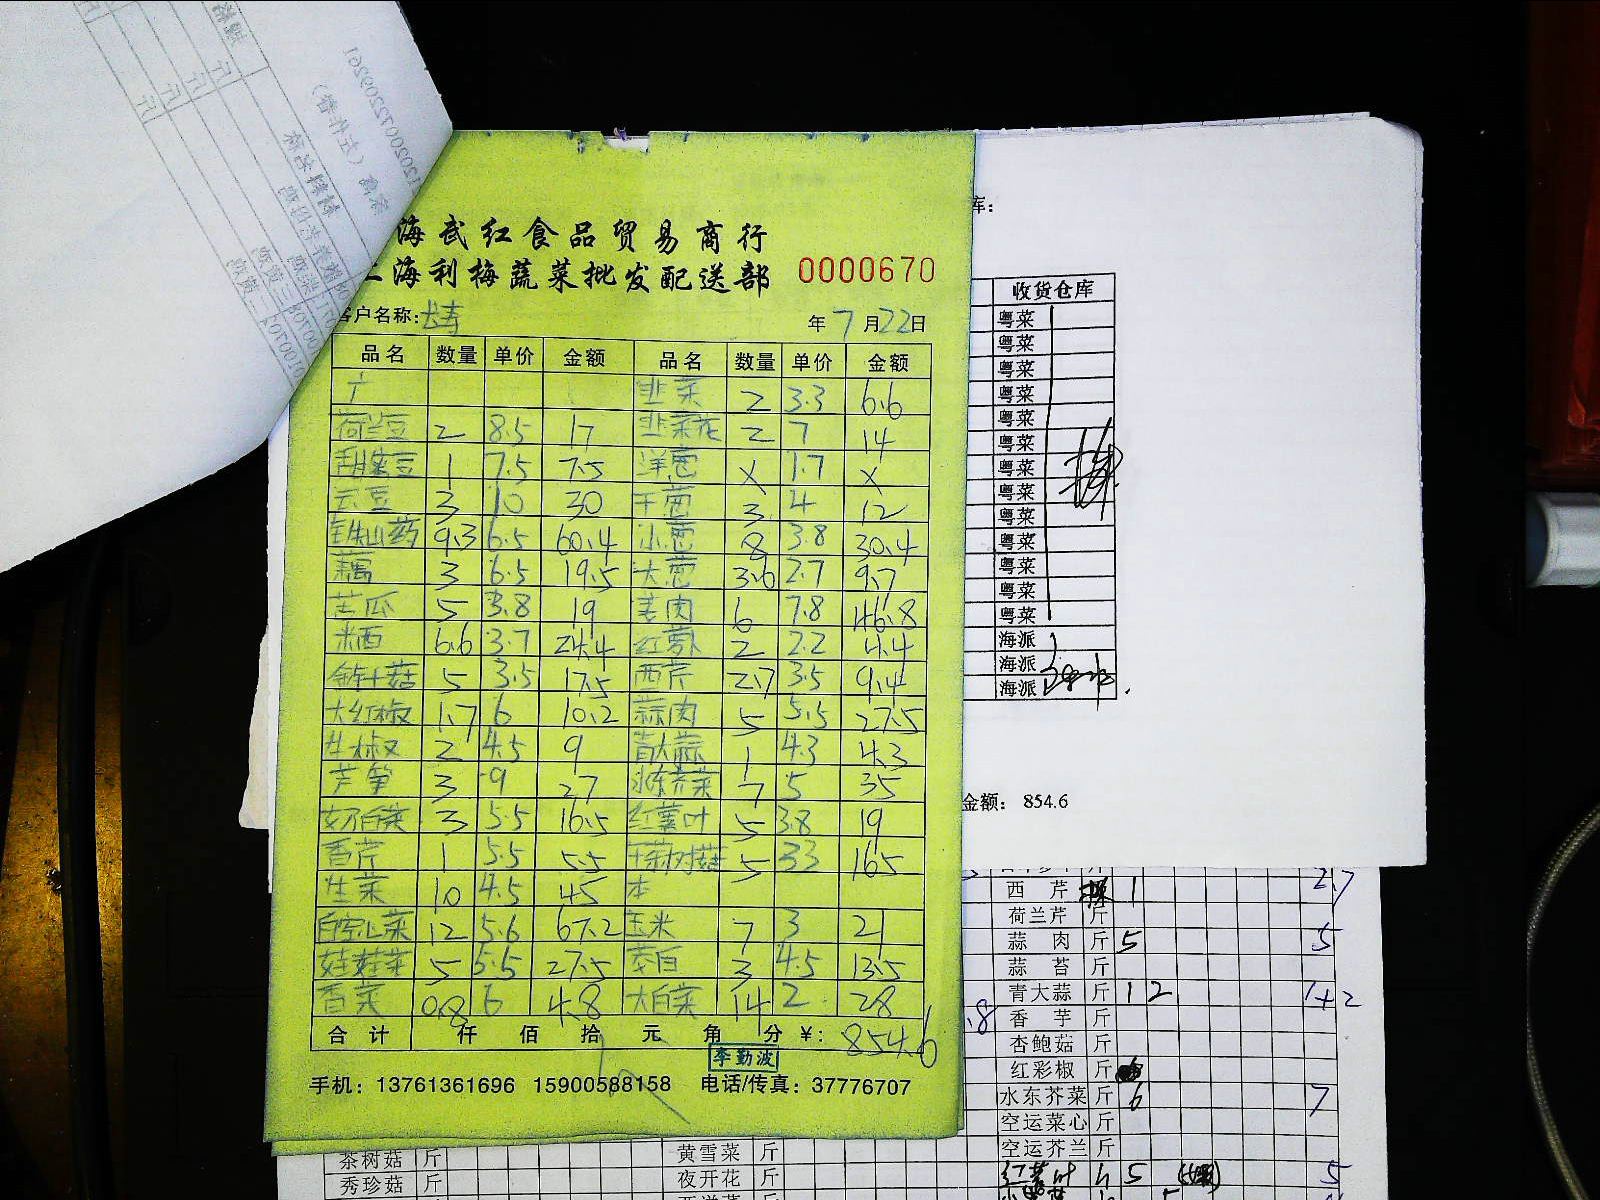 海武红食品贸易商行
上海利梅蔬菜批发配送部 0000670
客户名称: 年 7 月 22 日
品名 数量 单价 金额 品名 数量 单价 金额
韭菜 2 3.3 6.6
荷兰豆 2 8.5 17 韭菜花 2 7 14
甜蜜豆 1 7.5 7.5 洋葱 x 1.7 x
云豆 3 10 30 干葱 3 4 12
铁山药 9.3 6.5 60.4 小葱 8 3.8 30.4
藕 3 6.5 19.5 大葱 3.6 2.7 9.7
苦瓜 5 3.8 19 姜肉 6 7.8 46.8
米西 6.6 3.7 24.4 红萝卜 2 2.2 4.4
金针菇 5 3.5 17.5 西芹 2.7 3.5 9.4
大红椒 1.7 6 10.2 蒜肉 5 5.5 27.5
生椒 2 4.5 9 青大蒜 1 4.3 4.3
芦笋 3 9 27 水东芥菜 7 5 35
奶白菜 3 5.5 16.5 红薯叶 5 3.8 19
香芹 1 5.5 5.5 干茶树菇 5 33 165
生菜 10 4.5 45 本
12 5.6 67.2 玉米 7 3 21
娃娃菜 5 5.5 27.5 茭白 3 4.5 13.5
香菜 0.8 6 4.8 大白菜 14 2 28
合计 仟 佰 拾 元 角 分 ¥: 854.6
李勤波
手机: 13761361696 15900588158 电话/传真: 37776707
库:
收货仓库
粤菜
粤菜
粤菜
粤菜
粤菜
粤菜
粤菜
粤菜
粤菜
粤菜
粤菜
粤菜
粤菜
海派
海派
海派
金额: 854.6
西芹 1 2.7
荷兰芹 斤
蒜肉 斤 5 5
蒜苔 斤
青大蒜 斤 1 2 1+2
香芋 斤
杏鲍菇 斤
红彩椒 斤
水东芥菜 斤 6 7
空运菜心 斤
空运芥兰 斤
红薯叶 5 5
茶树菇 斤 黄雪菜 斤
秀珍菇 斤 夜开花 斤